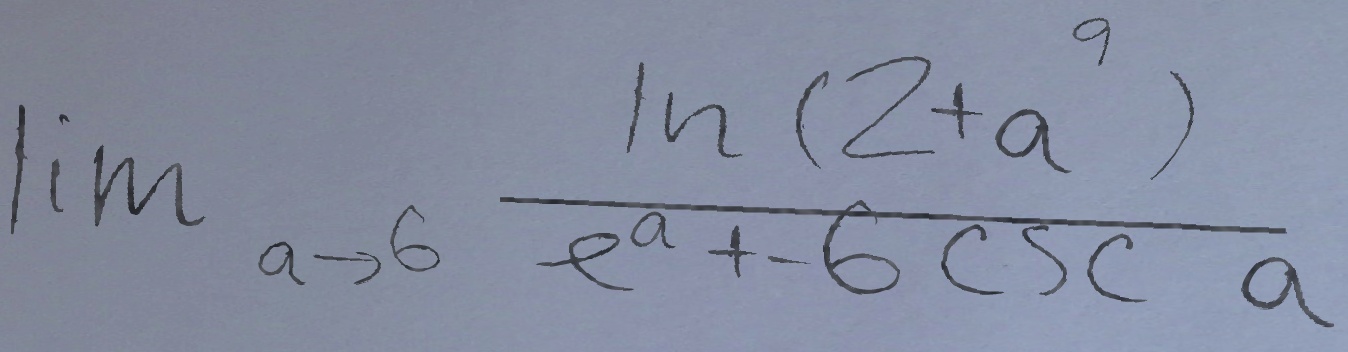 lim a→6 ln(2+a^9) / e^a+-6csc a